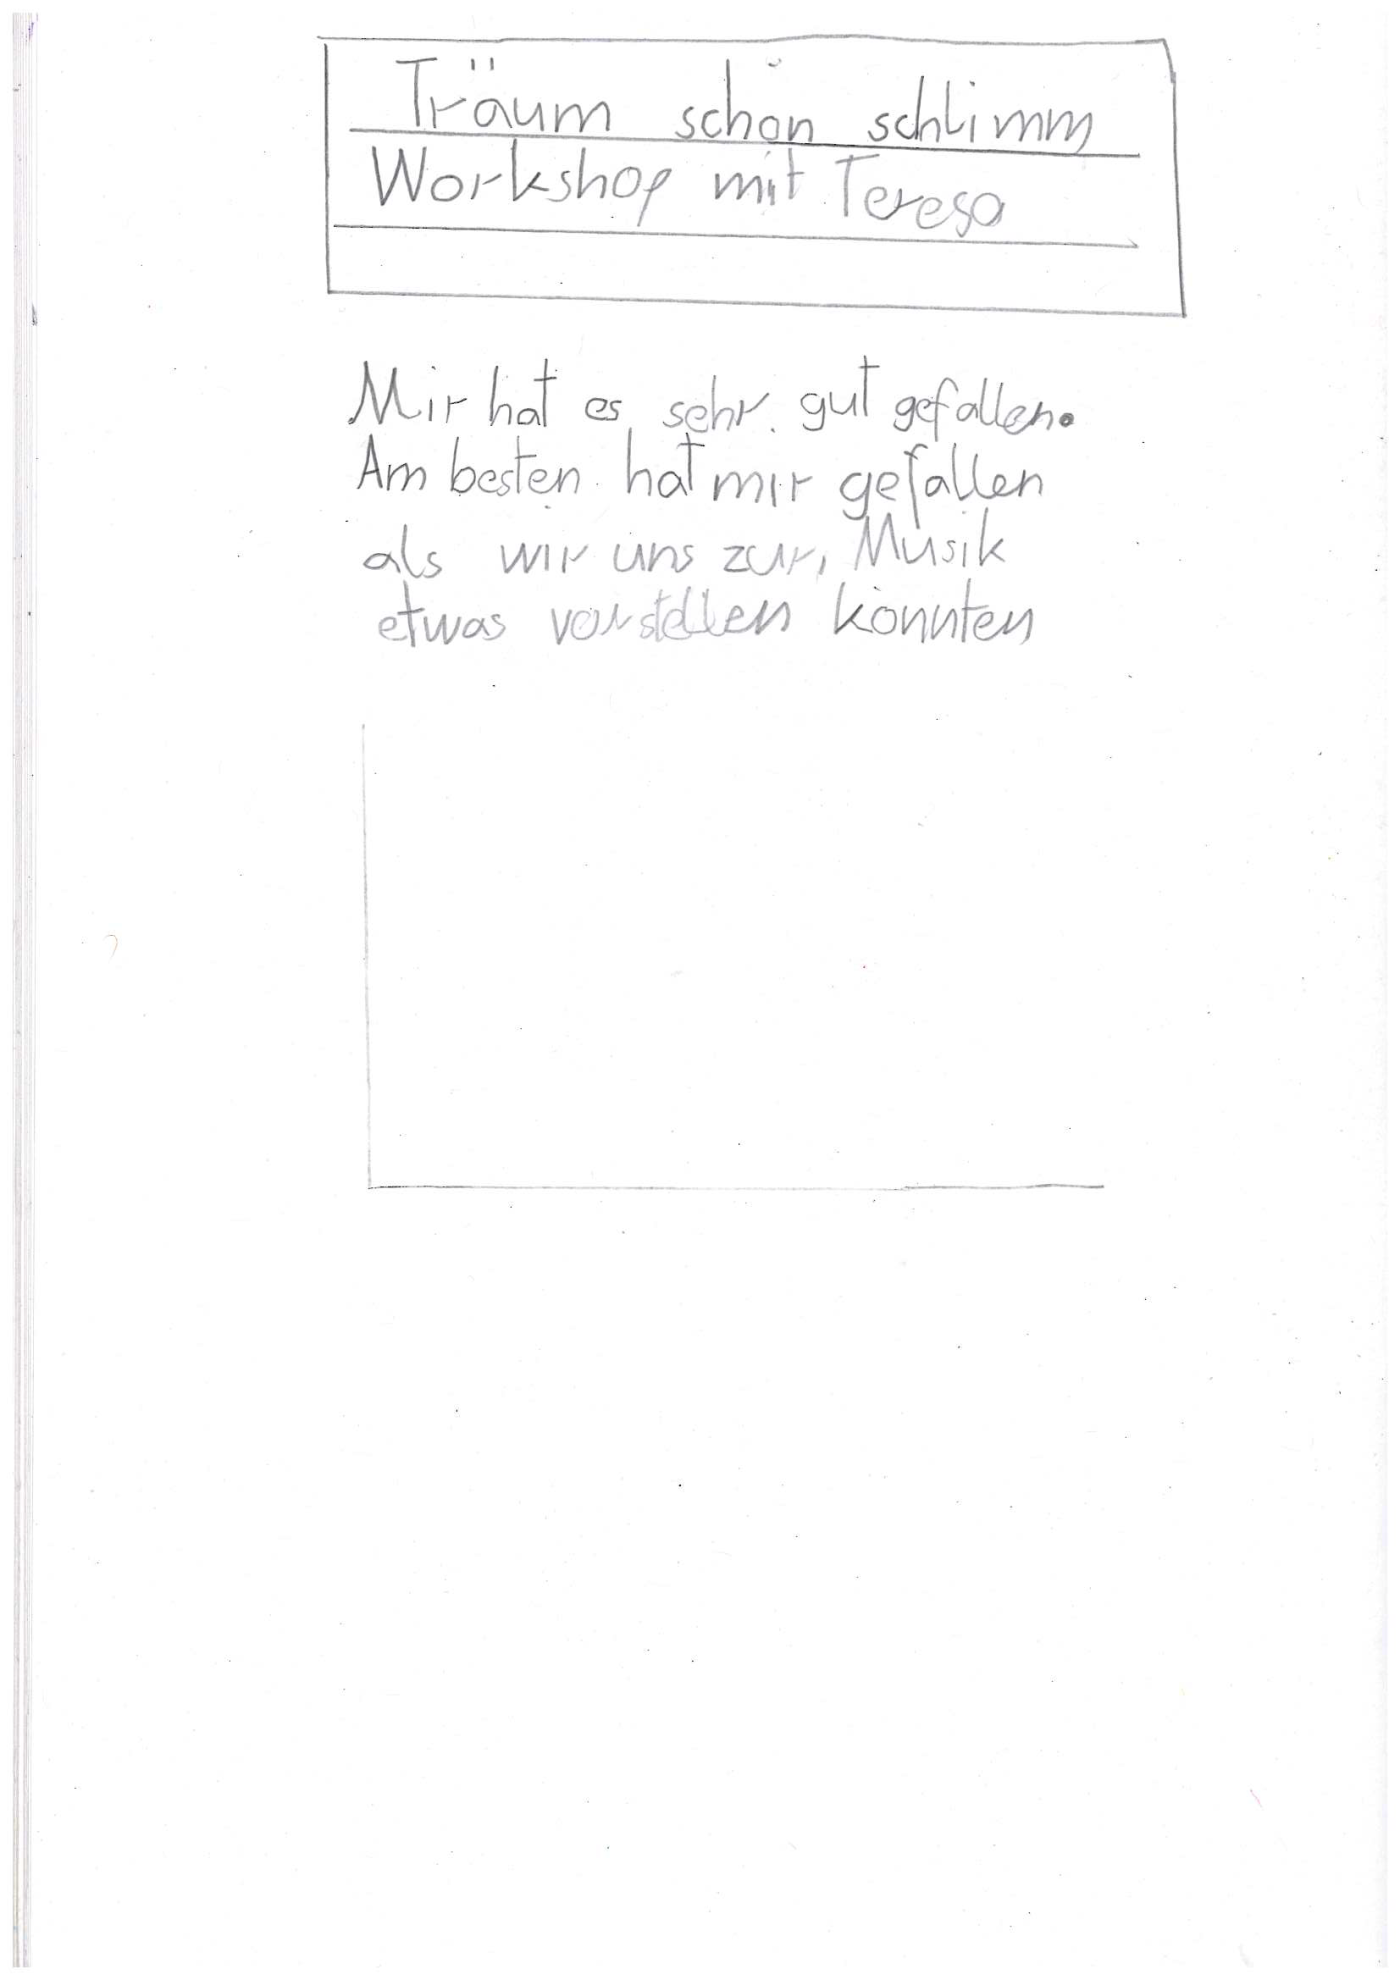 Träum schön schlimm
Workshop mit Teresa
Mir hat es sehr gut gefallen.
Am besten hat mir gefallen
als wir uns zur Musik
etwas vorstellen konnten